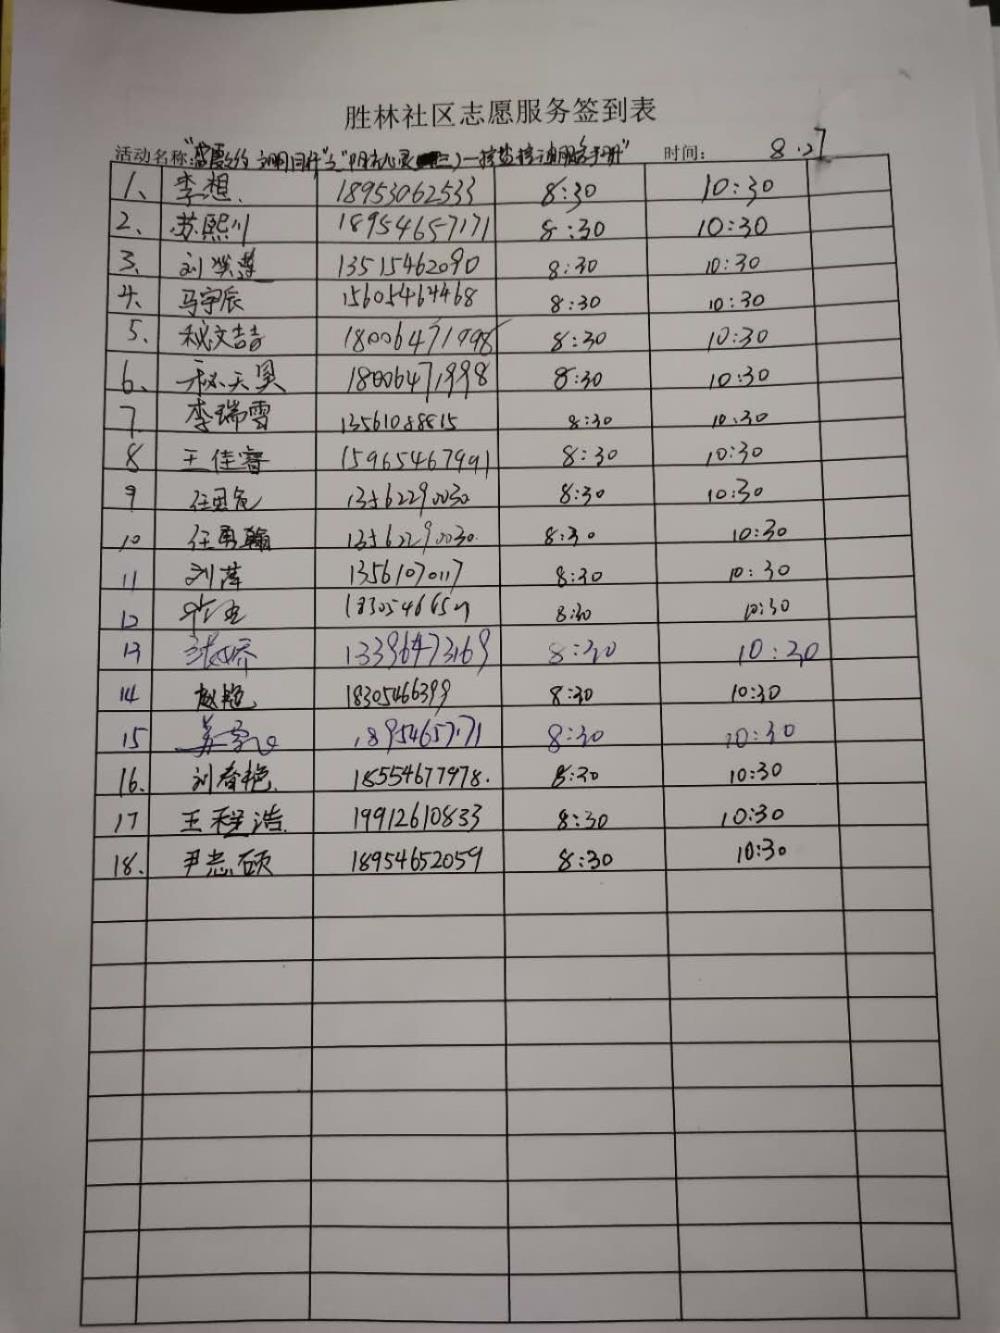 胜林社区志愿服务签到表
活动名称: 时间: 8.27
1、 李想. 18953062533 8:30 10:30
2、 苏熙川 18954657171 8:30 10:30
3、 刘 13515462090 8:30 10:30
4、 马宇辰 15605464468 8:30 10:30
5、 秘文喆 18006471998 8:30 10:30
6、 秘天昊 18006471998 8:30 10:30
7、 李瑞雪 13561088815 8:30 10:30
8 王佳睿 15965467991 8:30 10:30
9 任 13562290030 8:30 10:30
10 任勇翰 13562290030. 8:30 10:30
11 刘萍 13561070117 8:30 10:30
12 8:30 10:30
13 张娇 13396473169 8:30 10:30
14 赵艳 18305466399 8:30 10:30
15 18954657171 8:30 10:30
16. 刘春艳. 18554677978. 8:30 10:30
17 王程浩. 19912610833 8:30 10:30
18. 尹志硕 18954652059 8:30 10:30